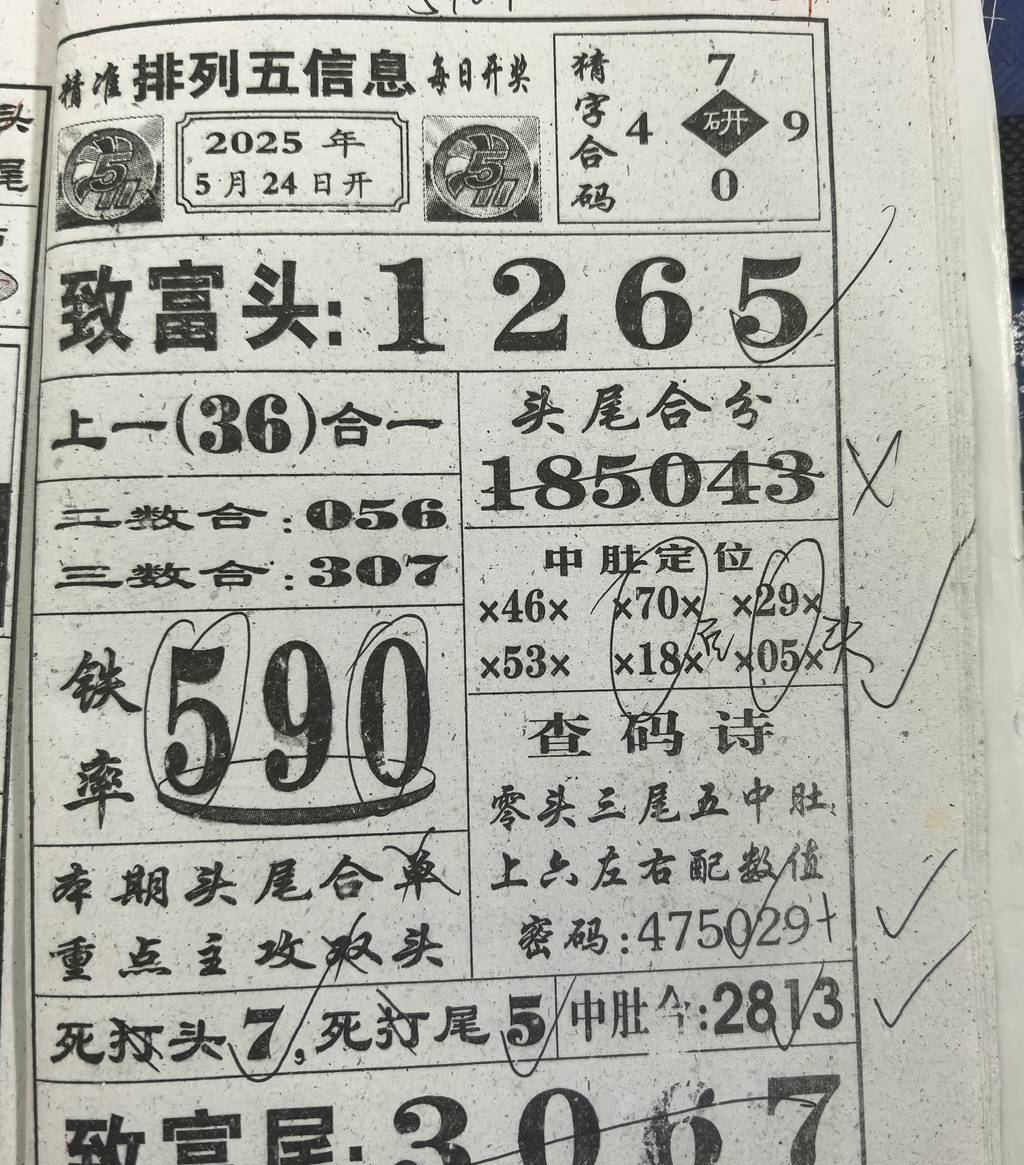 精准 排列五信息 每日开奖
2025 年
5月24日开
猜字合码
7
4 研 9
0
致富头: 1 2 6 5
上一(36)合一
二数合: 056
三数合: 307
头尾合分
185043
中肚定位
×46× ×70× ×29×
×53× ×18× ×05×
后 头
铁率 590
查码诗
零头三尾五中肚
上六左右配数值
密码: 475029+
本期头尾合单
重点主攻双头
死打头7, 死打尾5
中肚今:2813
致富尾: 3 0 6 7
头
尾